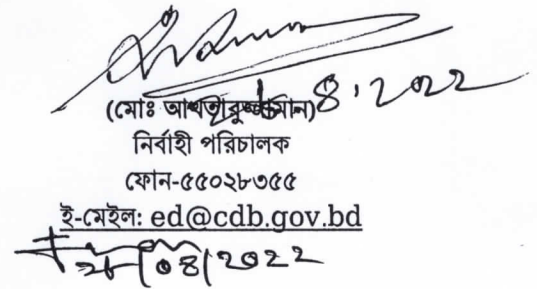 8.2022
(মোঃ আখতারুজ্জামান)
নির্বাহী পরিচালক
ফোন-৫৫০২৮৩৫৫
ই-মেইল: ed@cdb.gov.bd
/08/2022